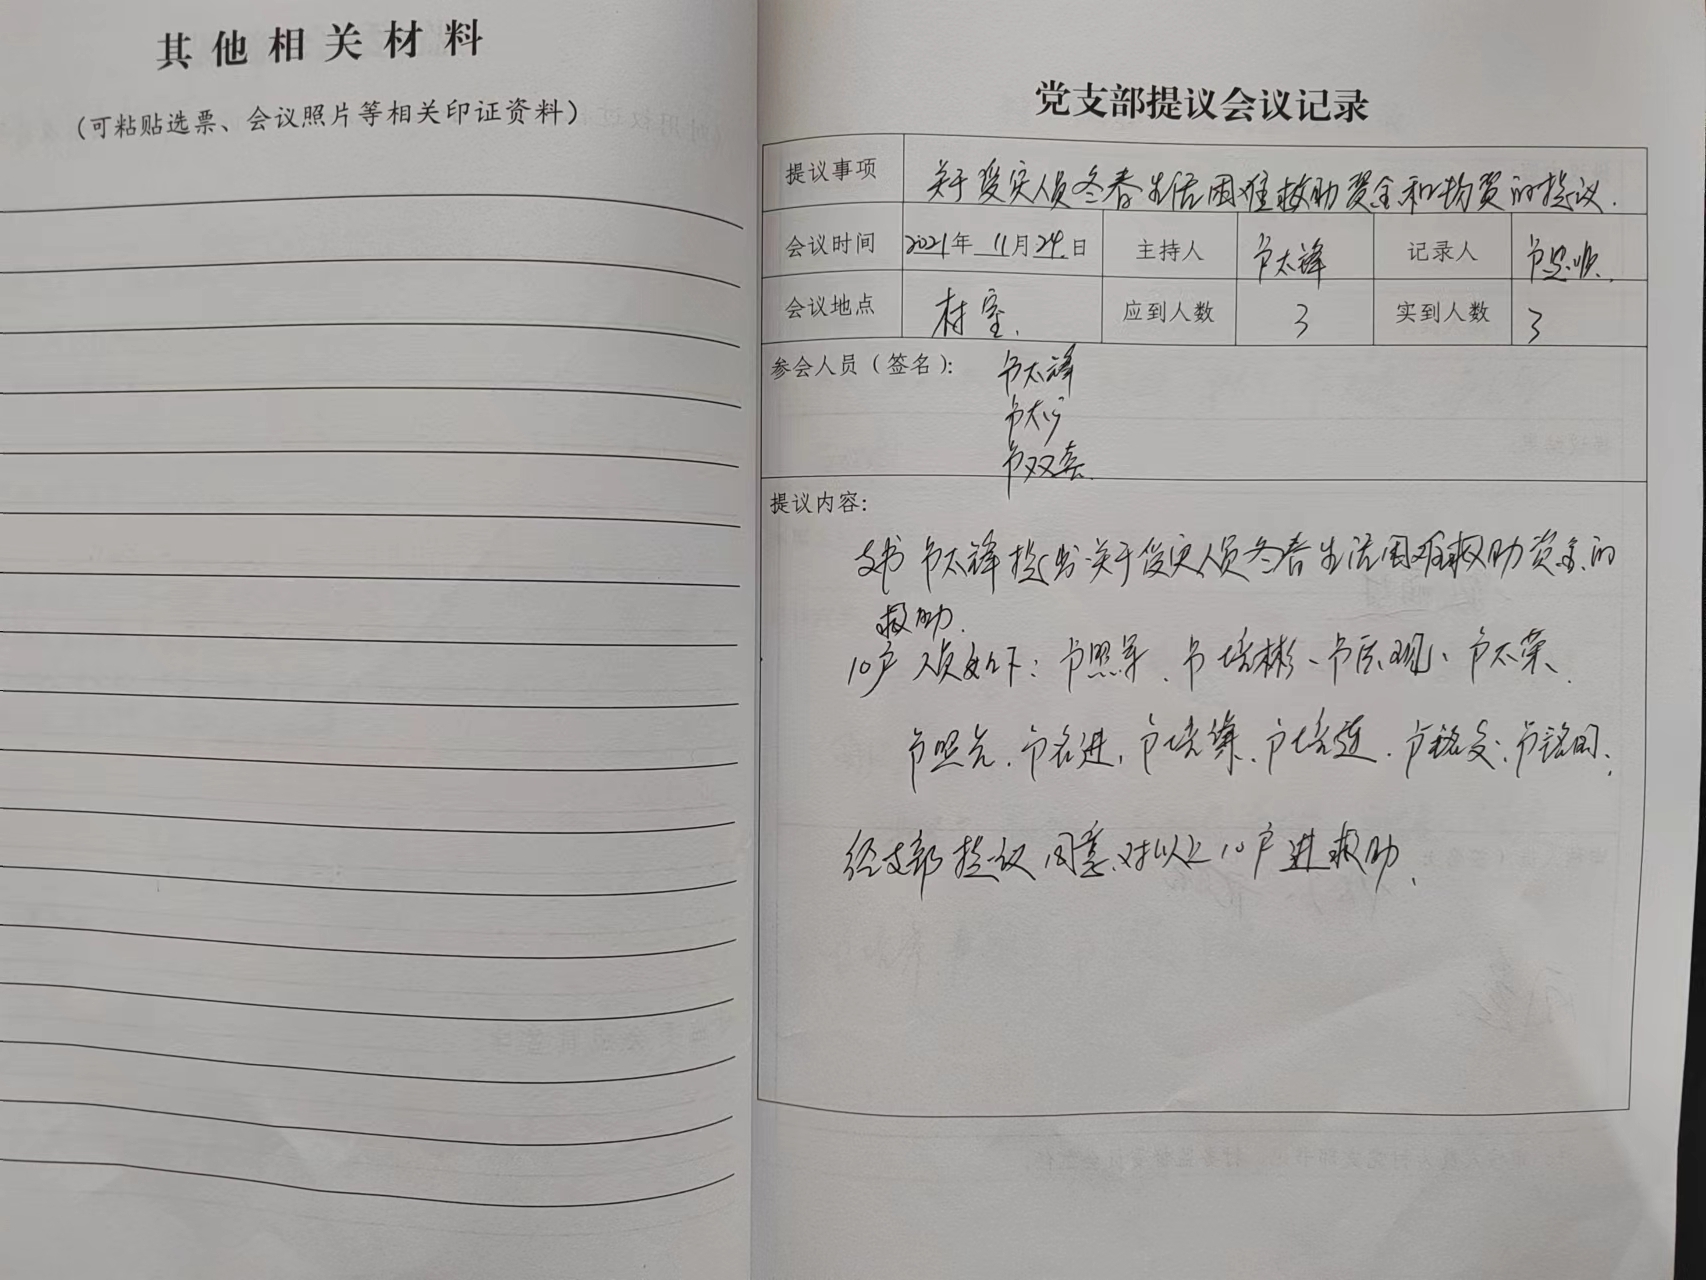 其他相关材料
(可粘贴选票、会议照片等相关印证资料)
党支部提议会议记录
提议事项 关于受灾人员冬春生活困难救助资金和物资的提议.
会议时间 2021年 11月24日 主持人 卢太锋 记录人
会议地点 村室. 应到人数 3 实到人数 3
参会人员(签名): 卢太锋
卢双喜
提议内容:
支书卢太锋提出关于受灾人员冬春生活困难救助资金的
救助.
10户人员如下: 卢照军、卢培彬、卢太荣、
卢照先、卢名进、卢培连、卢铭文、卢铭同、
经支部提议同意对以上10户进救助.